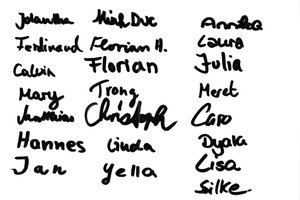 Jolantha Minh Duc Annika
Ferdinand Florian H. Laura
Calvin Florian Julia
Mary Trong Meret
Matthias Christoph Caro
Hannes Linda Dyala
Jan Yella Lisa
Silke